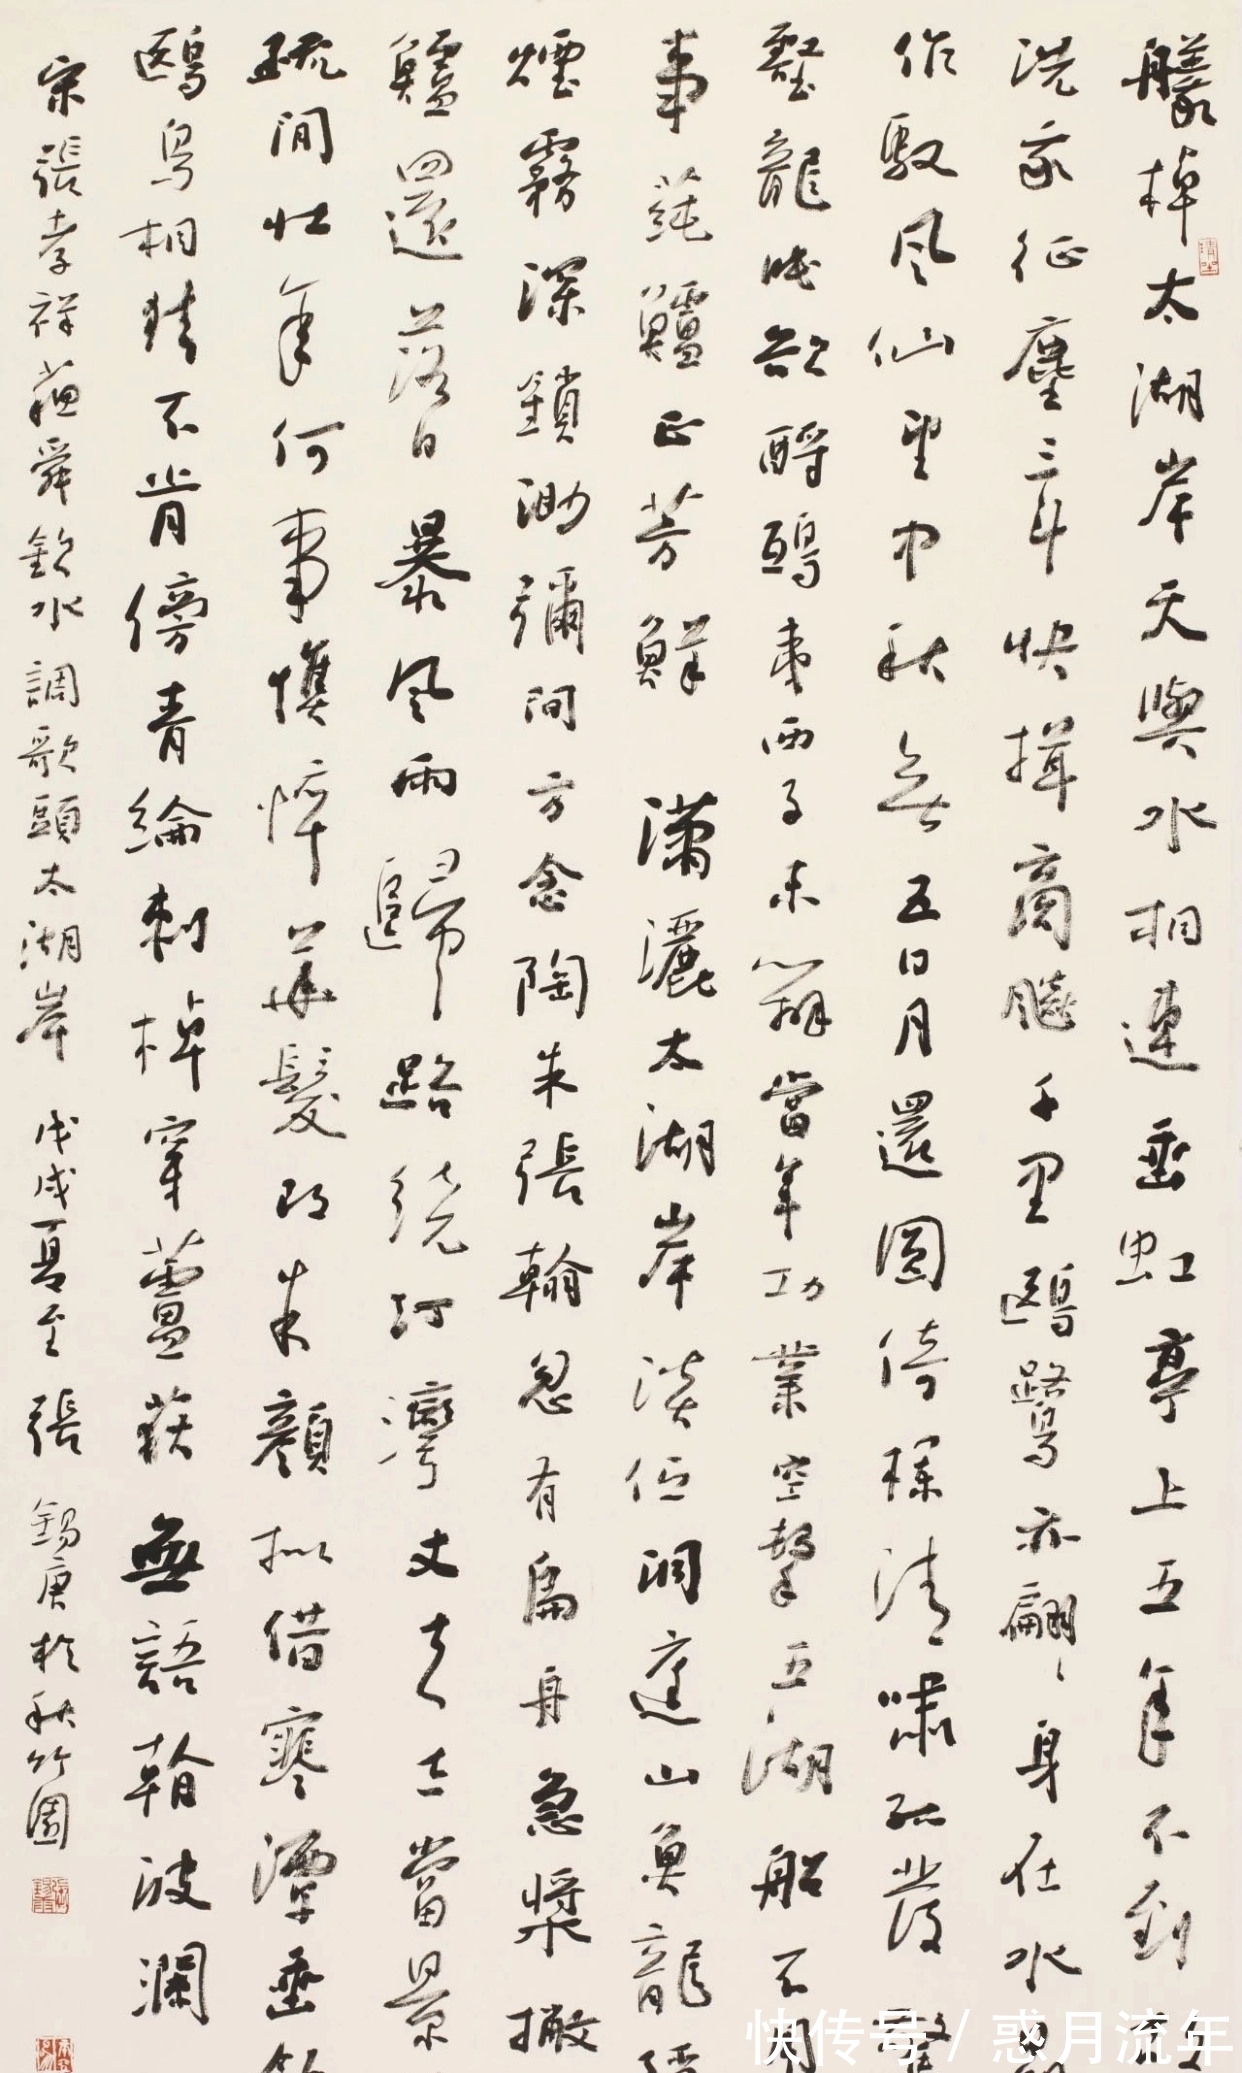 艤棹太湖岸天與水相連垂虹亭上五年不到
洗我征塵三斗快揖商飆千里鷗鷺亦翩々身在水
作馭風仙望中秋無五日月還圓倚欄清嘯孤發
壑龍眠欲酹鴟夷西子未辦當年功業空擊五湖船不用
事蓴鱸正芳鮮 瀟灑太湖岸淡佇洞庭山魚龍
煙霧深鎖渺瀰間方念陶朱張翰忽有扁舟急槳撇
鱸還落日暴風雨歸路繞汀灣丈夫志當景
疏閒壯年何事憔悴華髮改朱顏擬借寒潭垂釣
鷗鳥相猜不肯傍青綸刺棹穿蘆荻無語看波瀾
宋張孝祥蘇舜欽水調歌頭太湖岸 戊戌夏至 張錫庚於秋竹園
快传号 / 惑月流年